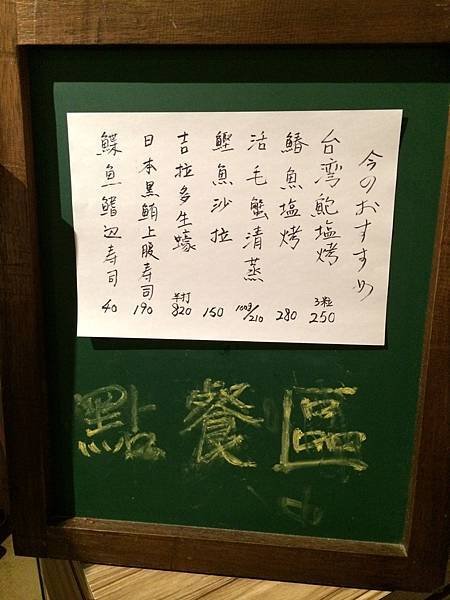 今のおすすめ
台湾鮑塩烤 3粒 250
鰆魚塩烤 280
活毛蟹清蒸 100g/210
鰹魚沙拉 150
吉拉多生蠔 半打 820
日本黑鮪上腹寿司 190
鰈魚鰭辺寿司 40
點餐區